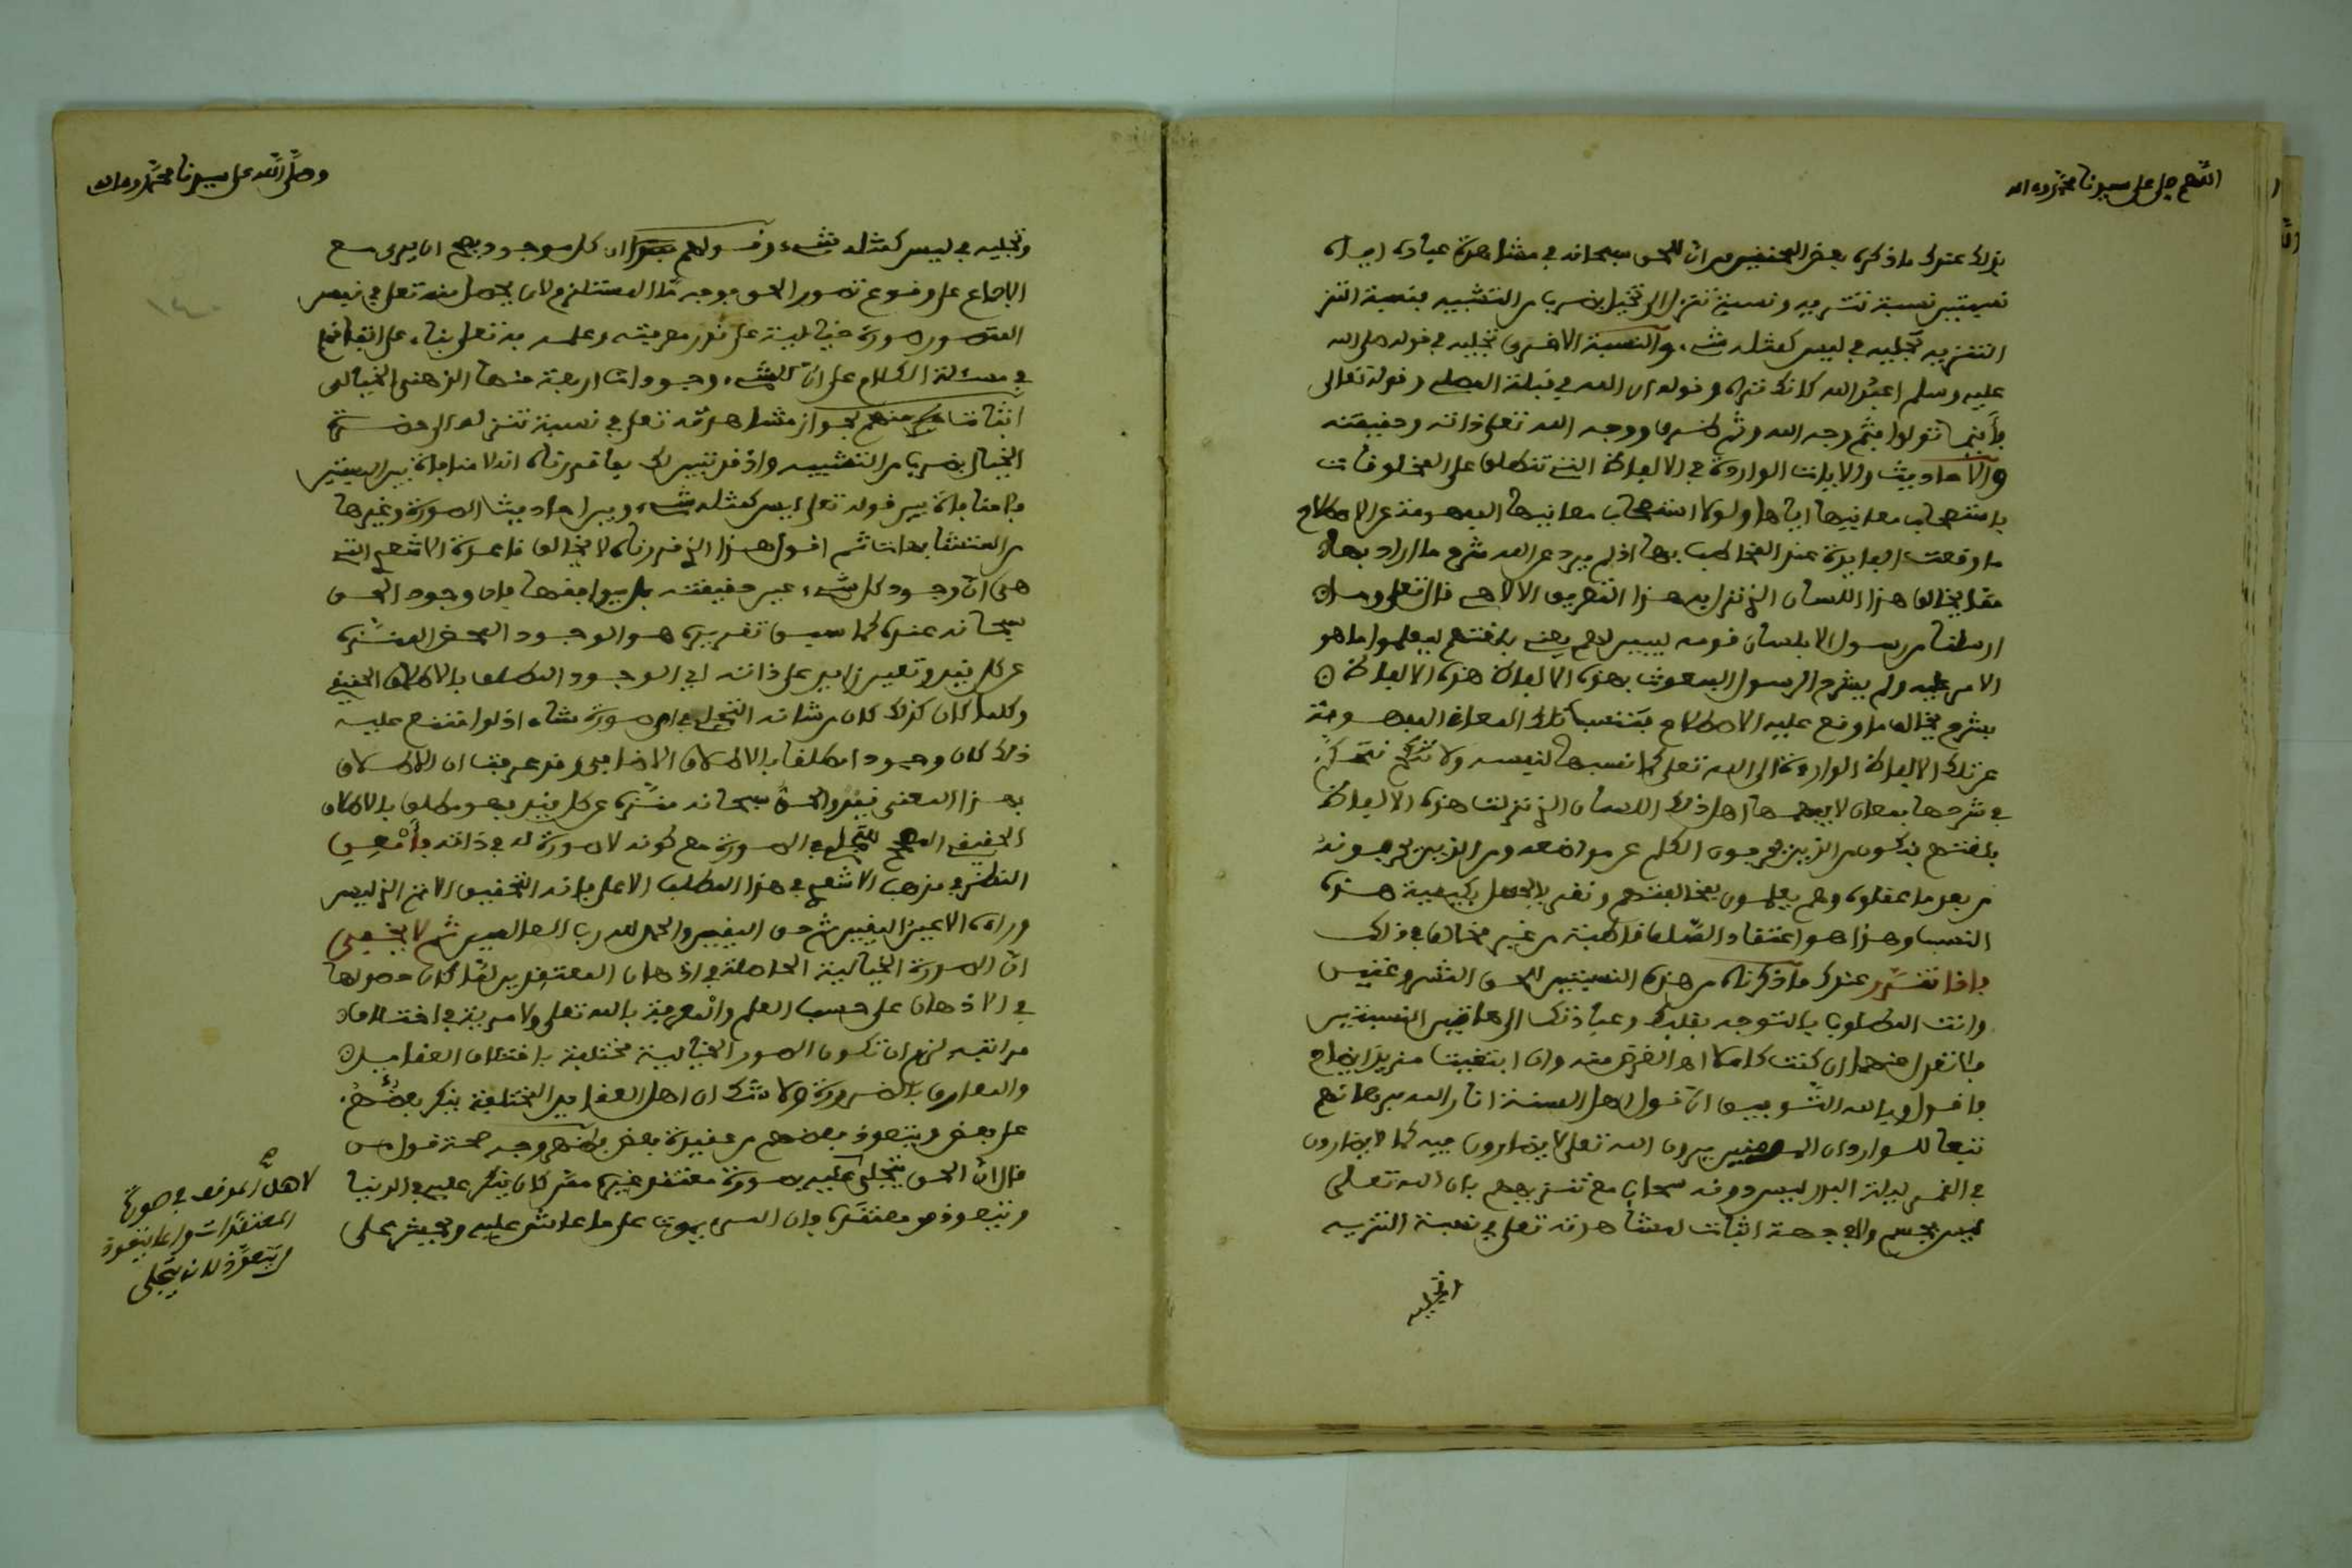 اللهم صل على سيدنا محمد وءاله
بذلك عندك ما ذكره بعض المحققين من ان للحق سبحانه في مشاهدة عباده اياه
نسبتين نسبة تنزيه ونسبة تنزل الى تخيل بضرب من التشبيه بنسبة التنز
التنزيه تجليه في ليس كمثله شيء والنسبة الاخرى تجليه في قوله صلى الله
عليه وسلم اعبد الله كانك تراه وقوله ان الله في قبلة المصلي وقوله تعالى
فأينما تولوا فثم وجه الله وثم ظرف ووجه الله تعلى ذاته وحقيقته
والاحاديث والايات الواردة في الالفاظ التي تنطلق على المخلوقات
باستصحاب معانيها اياها ولولا استصحاب معانيها المفهومة عن الاصطلاح
ما وقعت الفايدة عند المخاطب بها اذ لم يرد عن الله شرح ما اراد بها
مما يخالف هذا اللسان الذي نزل به هذا التعريف الالاهي قال تعلى وما
ارسلنا من رسول الا بلسان قومه ليبين لهم يعني بلغتهم ليعلموا ما هو
الامر عليه ولم يشرح الرسول المبعوث بهذه الالفاظ هذه الالفاظ
بشرح يخالف ما وقع عليه الاصطلاح فننسب تلك المعاني المفهومة
من تلك الالفاظ الواردة الى الله تعلى كما نسبها لنفسه ولا نتحكم
في شرحها بمعان لا يفهمها اهل ذلك اللسان الذي نزلت هذه الالفاظ
بلغتهم فنكون من الذين يحرفون الكلم عن مواضعه ومن الذين يحرفونه
من بعد ما عقلوه وهم يعلمون بمخالفتهم ونقر بالجهل بكيفية هذه
النسب وهذا هو اعتقاد السلف قاطبة من غير مخالف في ذلك
فاذا تقرر عندك ما ذكرناه من هذه النسبتين للحق المشروعتين
وانت المطلوب بالتوجه بقلبك وعبادتك الى هاتين النسبتين
فلا تعدل عنهما ان كنت كاملا اهـ الغرض منه وان ابتغيت مزيد ايضاح
فاقول وبالله التوفيق ان قول اهل السنة انار الله برهانهم
تبعا للوارد ان المومنين يرون الله تعلى لا يضارون فيه كما لا يضارون
في القمر ليلة البدر ليس دونه سحاب مع تنزيههم بان الله تعلى
ليس بجسم ولا في جهة اثبات لمشاهدته تعلى في نسبة التنزيه
وتجليه
وصلى الله على سيدنا محمد وءاله
وتجليه في ليس كمثله شيء وقولهم ان كل موجود يصح ان يرى مع
الاجماع على وقوع تصور الحق بوجه ما المستلزم لان يحصل منه تعلى في نفس
المتصور صورة خيالية على قدر معرفته وعلمه به تعلى بناء على اتفاقهم
في مسئلة الكلام على ان للشيء وجودات اربعة منها الذهني الخيالي
اثبات منهم لجواز مشاهدته تعلى في نسبة تنزله الى حضرة
الخيال بضرب من التشبيه واذ قد تبين لك بما قررناه انه لا منافاة بين النسبتين
فلا منافاة بين قوله تعلى ليس كمثله شيء وبين احاديث الصورة وغيرها
من المتشابهات ثم اقول هذا الذي قررناه لا يخالف قاعدة الاشعري التي
هي ان وجود كل شيء عين حقيقته بل يوافقها فان وجود الحق
سبحانه عنده كما سيق تقريره هو الوجود المحض المنزه
عن كل قيد وتعين زايد على ذاته اي الوجود المطلق بالاطلاق الحقيقي
وكلما كان كذلك كان من شانه التجلي في اي صورة شاء اذ لو امتنع عليه
ذلك لكان وجودا مطلقا بالاطلاق الاضافي وقد عرفت ان الاطلاق
بهذا المعنى تقييد والحق سبحانه منزه عن كل قيد فهو مطلق بالاطلاق
الحقيقي المصحح للتجلي في الصورة مع كونه لا صورة له في ذاته فأمعن
النظر في مذهب الاشعري في هذا المطلب الاعلى فانه التحقيق الاتم الذي ليس
وراءه الا عين اليقين ثم حق اليقين والحمد لله رب العالمين ثم لا يخفى
ان الصورة الخيالية الحاصلة في اذهان المعتقدين لما كان حصولها
في الاذهان على حسب العلم والمعرفة بالله تعلى ولا مرية في اختلاف
مراتبه لزم ان تكون الصور الخيالية مختلفة باختلاف العقايد
والمعارف بالضرورة ولا شك ان اهل العقايد المختلفة ينكر بعضهم
على بعض ويتعوذ بعضهم من عقيدة بعض فظهر وجه صحة قول من
قال ان الحق يتجلى عليه بصورة معتقد غيره ممن كان ينكر عليه في الدنيا
ويتعوذ من معتقده فان المرء يموت على ما عاش عليه ويحشر على
لاهل الموقف في صورة
المعتقدات وانما يتعوذ
من يتعوذ لانه يتجلى